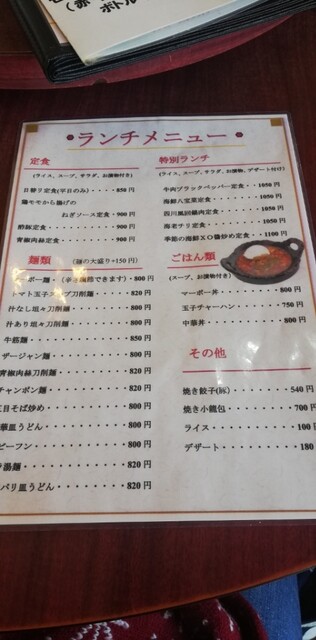 ボトル
ランチメニュー
定食
(ライス、スープ、サラダ、お漬物付き)
日替り定食(平日のみ)・・・・850円
鶏モモから揚げの
ねぎソース定食・900円
酢豚定食・・・・・・・・900円
青椒肉絲定食・・・・・・900円
麺類 (麺の大盛り+150円)
ーボー麺(辛さ調節できます)・800円
トマト玉子スープ刀削麺・・・820円
汁なし坦々刀削麺・・・・・・800円
汁あり坦々刀削麺・・・・・・800円
牛筋麺・・・・・・・・・・・850円
ザージャン麺・・・・・・・・800円
青椒肉絲刀削麺・・・・・・・820円
チャンポン麺・・・・・・・・820円
目そば炒め・・・・・・・・・800円
華皿うどん・・・・・・・・・800円
ビーフン・・・・・・・・・・800円
湯麺・・・・・・・・・・・・820円
パリ皿うどん・・・・・・・・820円
特別ランチ
(ライス、スープ、サラダ、お漬物、デザート付け)
牛肉ブラックペッパー定食・・・1050円
海鮮八宝菜定食・・・・・・・・1050円
四川風回鍋肉定食・・・・・・・1050円
海老チリ定食・・・・・・・・・1050円
季節の海鮮XO醤炒め定食・・・1100円
ごはん類
(スープ、お漬物付き)
マーボー丼・・・・・・・・800円
玉子チャーハン・・・・・・750円
中華丼・・・・・・・・・・800円
その他
焼き餃子(豚)・・・・・・540円
焼き小籠包・・・・・・・・700円
ライス・・・・・・・・・・100円
デザート・・・・・・・・・180